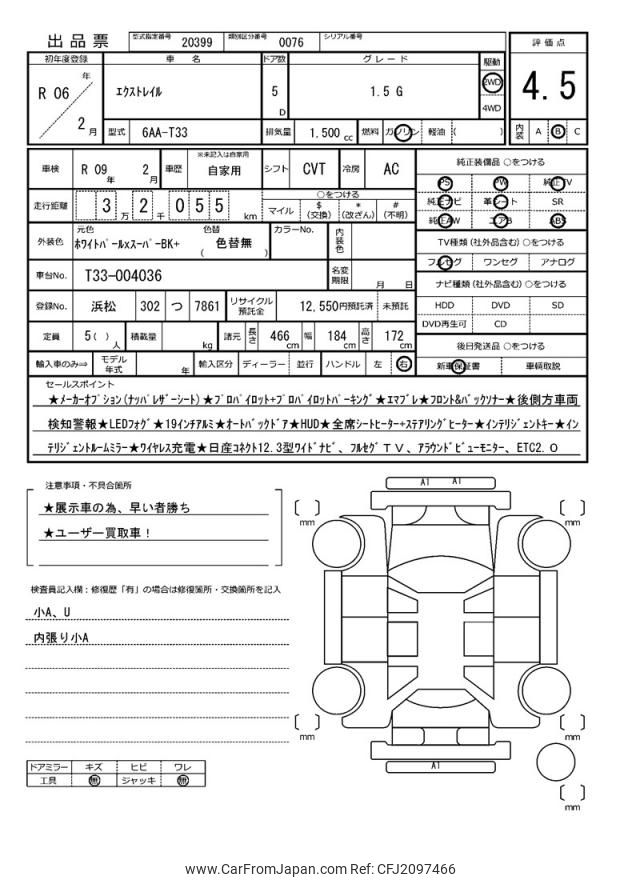 出品票 型式指定番号 20399 類別区分番号 0076 シリアル番号
評価点
4.5
内装 A B C
初年度登録 車名 ドア数 グレード 駆動
R 06 年 2 月 エクストレイル 5 D 1.5 G 2WD 4WD
型式 6AA-T33 排気量 1.500 cc 燃料 ガソリン 軽油 ( )
車検 R 09 年 2 月 車歴 ※未記入は自家用 自家用 シフト CVT 冷房 AC
走行距離 3 万 2 千 055 km ○をつける
マイル $ (交換) * (改ざん) # (不明)
外装色 元色 ホワイトパールxスーパーBK+ 色替 ( 色替無 ) カラーNo. 内装色
車台No. T33-004036 名変期限 月 日
登録No. 浜松 302 つ 7861 リサイクル預託金 12,550円預託済 未預託
定員 5( ) 人 積載量 kg 諸元 長さ 466 cm 幅 184 cm 高さ 172 cm
輸入車のみ⇒ モデル年式 年 輸入区分 ディーラー 並行 ハンドル 左 右
純正装備品 ○をつける
PS PW 純正TV
純正ナビ 革シート SR
純正AW エアB ABS
TV種類 (社外品含む) ○をつける
フルセグ ワンセグ アナログ
ナビ種類 (社外品含む) ○をつける
HDD DVD SD
DVD再生可 CD
後日発送品 ○をつける
新車保証書 車輌取説
セールスポイント
★メーカーオプション(ナッパレザーシート)★プロパイロット+プロパイロットパーキング★エマブレ★フロント&バックソナー★後側方車両
検知警報★LEDフォグ★19インチアルミ★オートバックドア★HUD★全席シートヒーター+ステアリングヒーター★インテリジェントキー★イン
テリジェントルームミラー★ワイヤレス充電★日産コネクト12.3型ワイドナビ、フルセグTV、アラウンドビューモニター、ETC2.0
注意事項・不具合箇所
★展示車の為、早い者勝ち
★ユーザー買取車!
検査員記入欄:修復歴「有」の場合は修復箇所・交換箇所を記入
小A、U
内張り小A
ドアミラー キズ ヒビ ワレ
工具 無 ジャッキ 無
A1 A1
mm mm
mm mm
A1
mm
www.CarFromJapan.com Ref: CFJ2097466